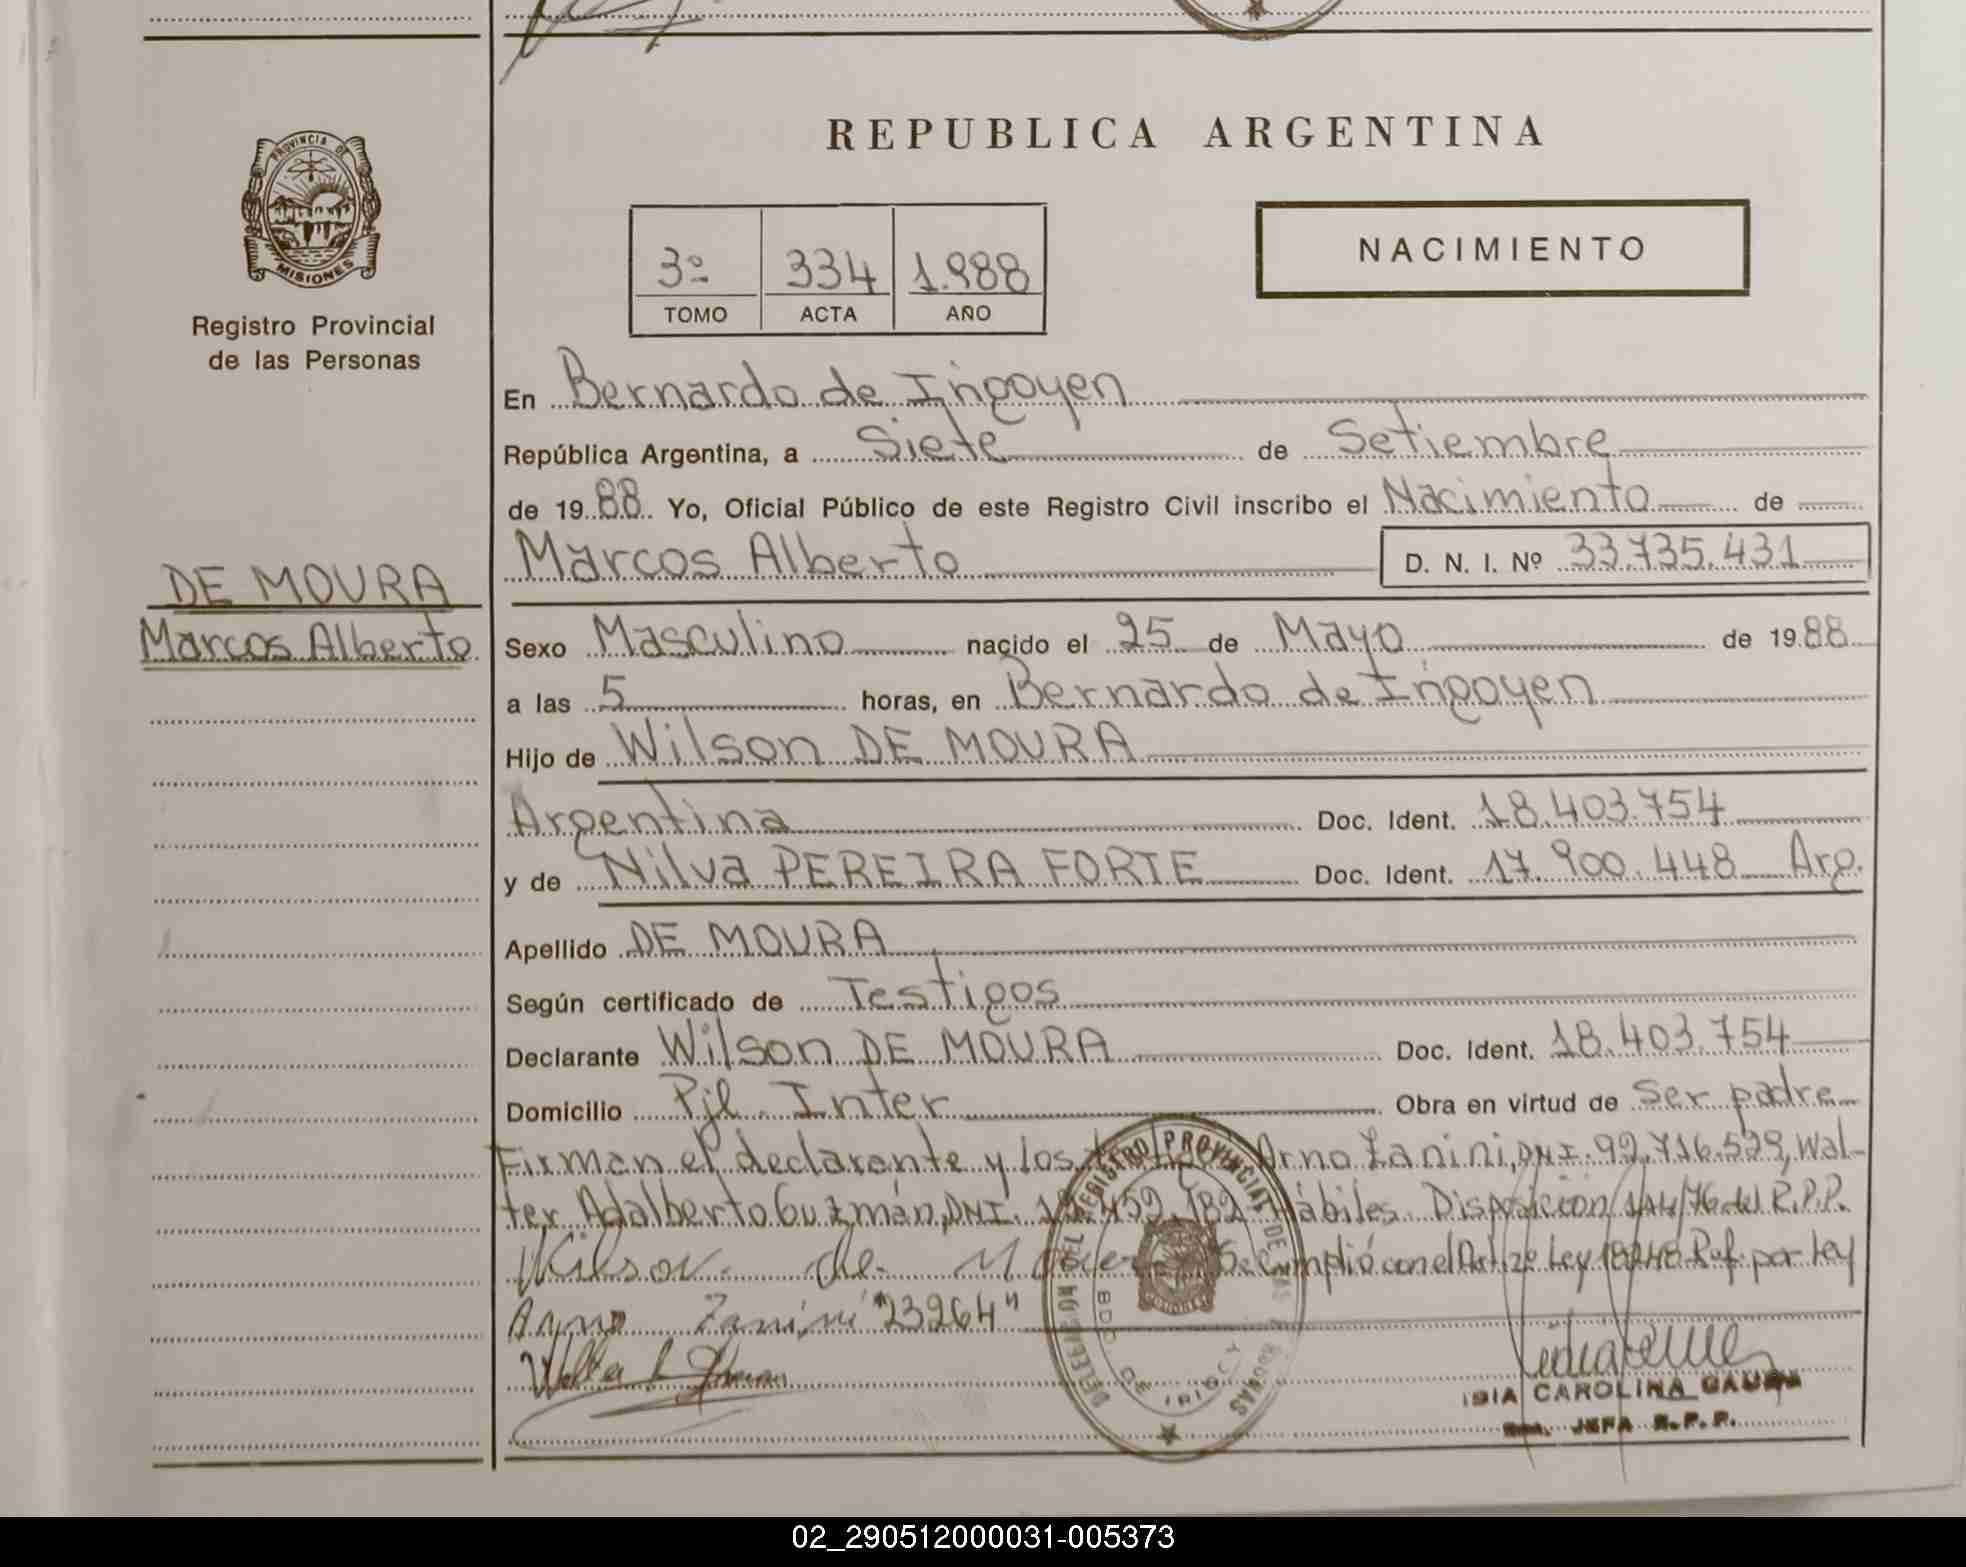 REPUBLICA ARGENTINA
PROVINCIA DE
MISIONES
Registro Provincial
de las Personas
3º 334 1.988
TOMO ACTA AÑO
NACIMIENTO
En Bernardo de Irigoyen
República Argentina, a Siete de Setiembre
de 19 88 Yo, Oficial Público de este Registro Civil inscribo el Nacimiento de
Marcos Alberto D. N. I. Nº 33.735.431
DE MOURA
Marcos Alberto
Sexo Masculino nacido el 25 de Mayo de 19 88
a las 5 horas, en Bernardo de Irigoyen
Hijo de Wilson DE MOURA
Argentina Doc. Ident. 18.403.754
y de Nilva PEREIRA FORTE Doc. Ident. 17.900.448 Arg.
Apellido DE MOURA
Según certificado de Testigos
Declarante Wilson DE MOURA Doc. Ident. 18.403.754
Domicilio Pjl. Inter Obra en virtud de ser padre
Firman el declarante y los Arno Zanini, DNI. 92.716.529, Wal-
ter Adalberto Guzmán, DNI. 182 Hábiles. Disposición 144/76 del R.P.P.
Wilson de Se cumplió con el Art. 2º Ley 18248 Ref. por Ley
Arno Zanini "23264"
DELEGACION DEL REGISTRO PROVINCIAL DE LAS PERSONAS
BDO. DE IRIGOYEN
CAROLINA
JEFA R.P.P.
02_290512000031-005373